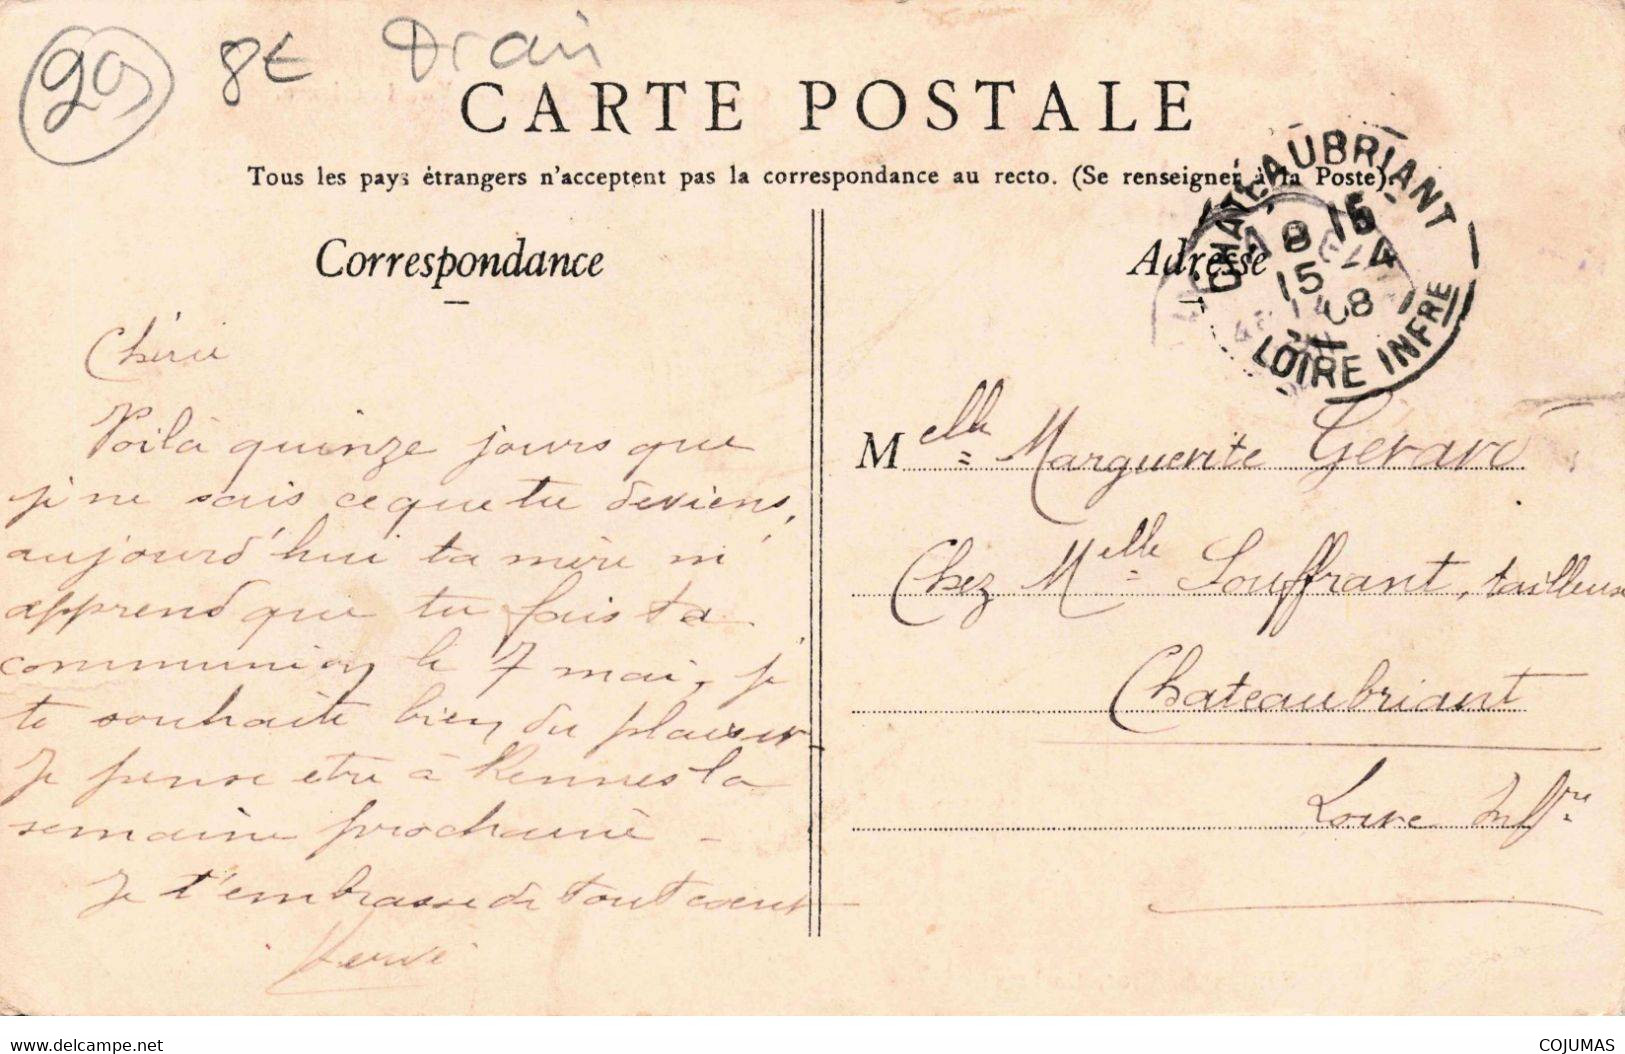 29
8€
Drain
CARTE POSTALE
Tous les pays étrangers n'acceptent pas la correspondance au recto. (Se renseigner à la Poste).
Correspondance
Chérie
Voilà quinze jours que
je ne sais ce que tu deviens,
aujourd'hui ta mère m'
apprend que tu fais ta
communion le 7 mai, je
te souhaite bien du plaisir
Je pense être à Rennes la
semaine prochaine -
Je t'embrasse de tout coeur
Hervé
Adresse
CHATEAUBRIANT
8 15
15 4
08
LOIRE INFRE
Melle Marguerite Gerard
Chez Melle Souffrant, tailleuse
Chateaubriant
Loire Infre
www.delcampe.net
COJUMAS